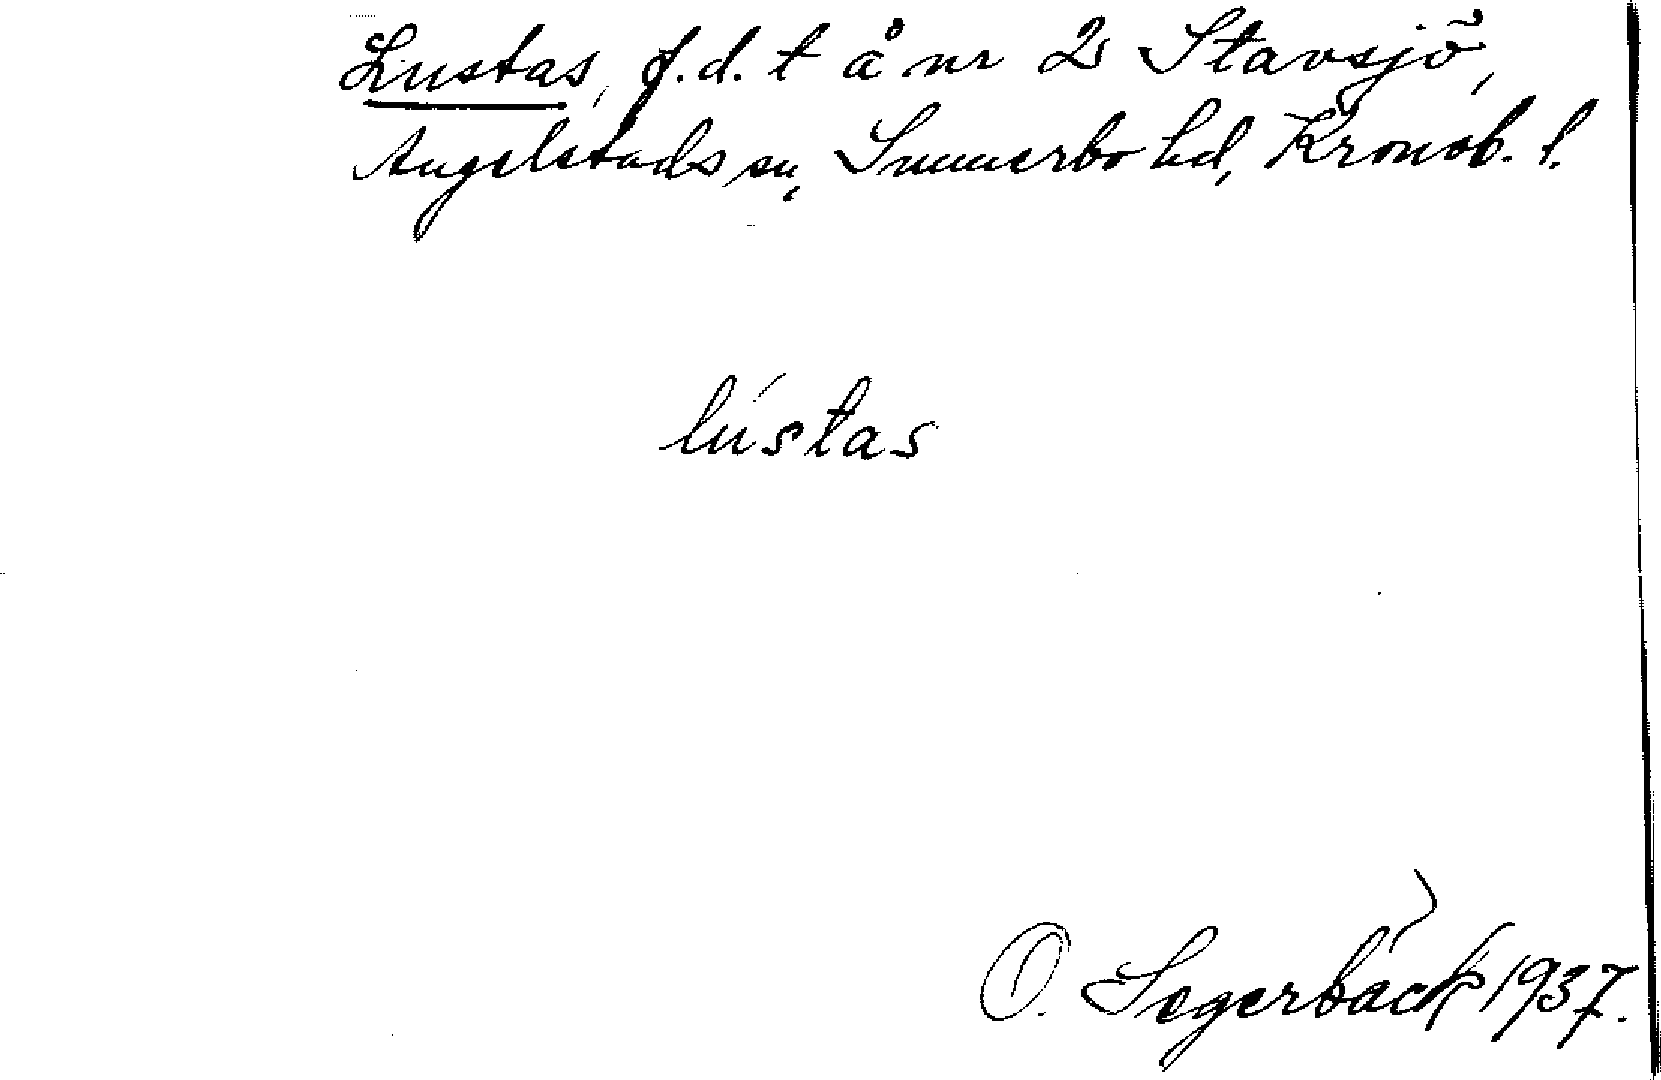 Lustas, f.d. t å nr 2 Stavsjö,
Angelstads sn, Sunnerbo hd, Kronob. l.
lústas
O. Segerbäck 1937.